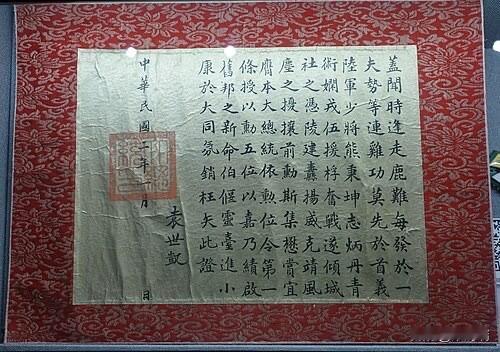 蓋聞時逢走鹿難每發於一
夫勢等連雞功莫先於首義
陸軍少將熊秉坤志炳丹青
術嫻戎伍援桴奮戰遂傾城
社之憑陵建纛揚威克靖風
塵之擾攘前勳斯集懋賞宜
膺本大總統依勳位令第一
條授以勳五位以嘉乃績啟
舊邦之新命伯偃靈臺進小
康於大同氛銷枉矢此證
袁世凱
中華民國 年 月 日